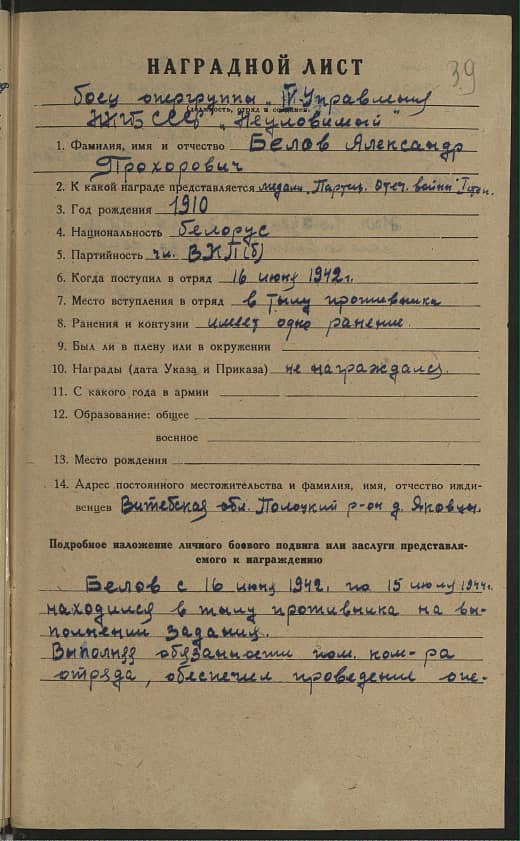 39
НАГРАДНОЙ ЛИСТ
Боец опергруппы „IV Управления
(должность, отряд и соединен.)
НКГБ СССР „Неуловимый"
1. Фамилия, имя и отчество Белов Александр
Прохорович
2. К какой награде представляется медали „Партиз. отеч. войны" I степ.
3. Год рождения 1910
4. Национальность белорус
5. Партийность чл. ВКП(б)
6. Когда поступил в отряд 16 июня 1942 г.
7. Место вступления в отряд в тылу противника
8. Ранения и контузии имеет одно ранение.
9. Был ли в плену или в окружении
10. Награды (дата Указа и Приказа) не награждался.
11. С какого года в армии
12. Образование: общее
военное
13. Место рождения
14. Адрес постоянного местожительства и фамилия, имя, отчество ижди-
венцев Витебская обл. Полоцкий р-он д. Яковцы.
Подробное изложение личного боевого подвига или заслуги представля-
емого к награждению
Белов с 16 июня 1942. по 15 июля 1944г.
находился в тылу противника на вы-
полнении задания.
Выполняя обязанности пом. ком-ра
отряда, обеспечил проведение опе-